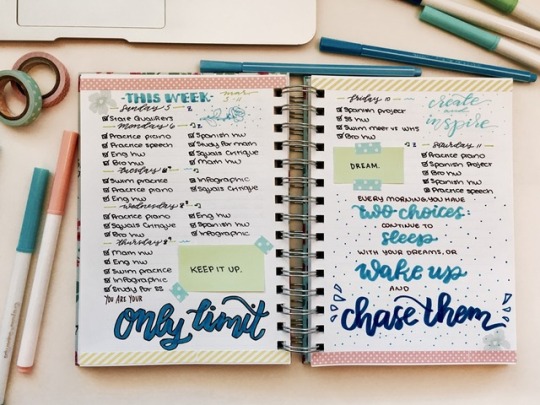 THIS WEEK
mar
5-11
Sunday 5
State Qualifiers
Monday 6
Practice piano
Practice speech
Eng hw
Bio hw
Spanish hw
Study for math
Squals Critique
Math hw
Tuesday 7
Swim practice
Practice piano
Eng hw
Infographic
Squals Critique
Wednesday 8
Practice piano
Squals Critique
Bio hw
Eng hw
Spanish hw
Infographic
Thursday 9
Math hw
Eng hw
Swim practice
Infographic
Study for SS
KEEP IT UP.
YOU ARE YOUR
only limit
Friday 10
Spanish project
SS hw
Swim meet vs WHS
Bio hw
create
inspire
DREAM.
Saturday 11
Practice piano
Spanish Project
Bio hw
Spanish hw
Practice speech
EVERY MORNING YOU HAVE
two choices:
CONTINUE TO
sleep
WITH YOUR DREAMS, OR
wake up
AND
chase them